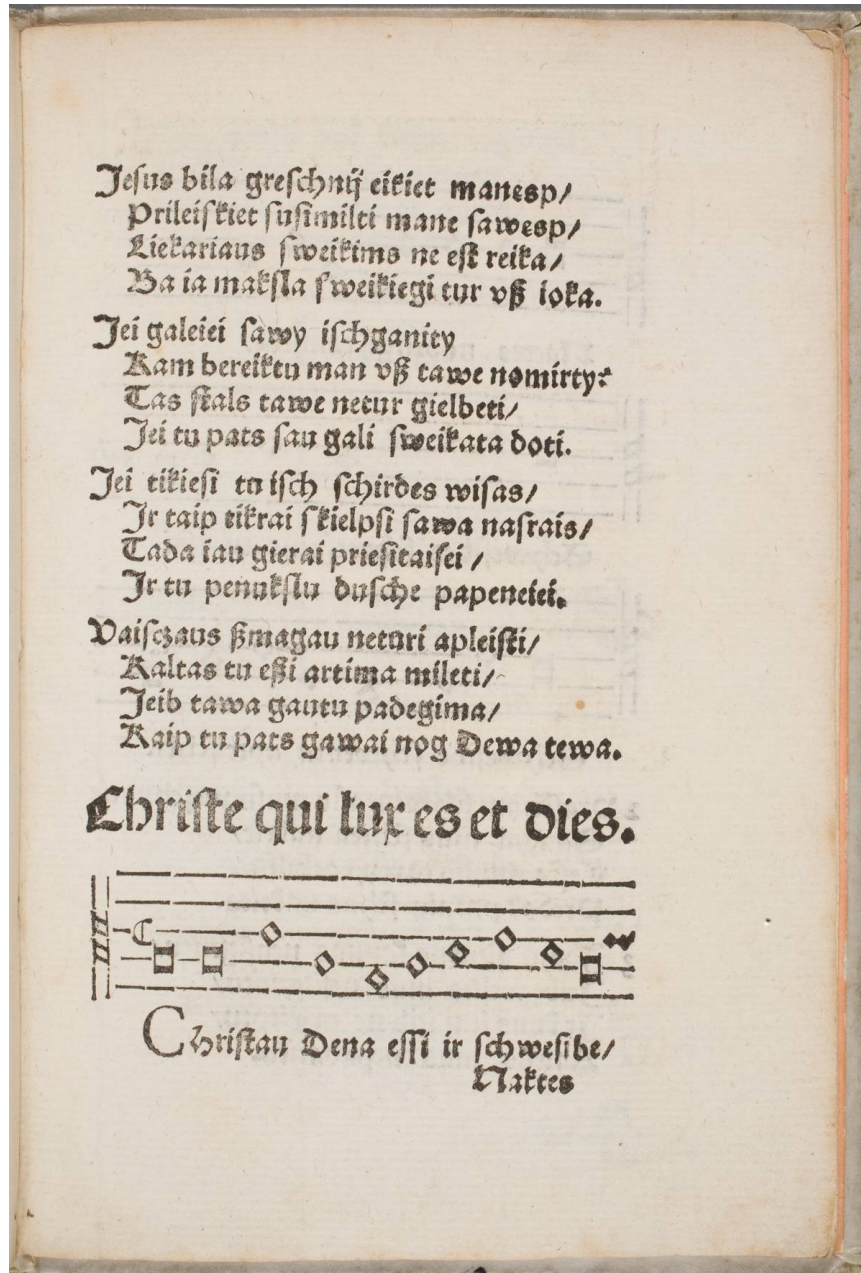 Jeſus bila greſchnij eikiet manesp/
Prileiſkiet ſuſimilti mane ſawesp/
Liekariaus ſweikims ne eſt reika/
Ba ia makſla ſweikiegi tur vß ioka.
Jei galeiei ſawy iſchganity
Kam bereiktu man vß tawe nomirty?
Tas ſtals tawe netur gielbeti/
Jei tu pats ſau gali ſweikata doti.
Jei tikieſi tu iſch ſchirdes wiſas/
Ir taip tikrai ſkielpſi ſawa naſrais/
Tada iau gierai prieſitaiſei /
Ir tu penukſlu duſche papeneiei.
Vaiſczaus ßmagau neturi apleiſti/
Kaltas tu eßi artima mileti/
Jeib tawa gautu padegima/
Kaip tu pats gawai nog Dewa tewa.
Chriſte qui lux es et dies.
Chriſtau Dena eſſi ir ſchweſibe/
Naktes